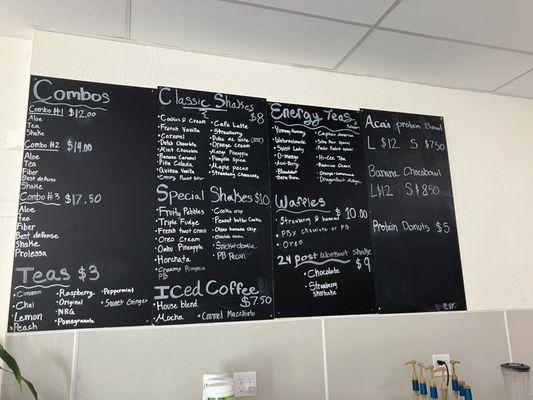 Combos
Combo #1 $12.00
Aloe
Tea
Shake
Combo #2 $14.00
Aloe
Tea
Fiber
Best defense
Shake
Combo #3 $17.50
Aloe
Tea
Fiber
Best defense
Shake
Prolessa
Teas $3
Lemon
Chai
Peach
Raspberry
Original
NRG
Pomegranate
Peppermint
Sweet Ginger
Classic Shakes $8
Cookies & Cream
French Vanilla
Caramel
Dutch Chocolate
Mint Chocolate
Banana Caramel
Piña Colada
Caffe Latte
Strawberry
Dulce de Leche
Orange Cream
Banana Cream
Pumpkin Spice
Maple pecan
Strawberry Cheesecake
Special Shakes $10
Fruity Pebbles
Triple Fudge
French toast crunch
Oreo Cream
Horchata
Creamy Pumpkin
PB
Cookie crisp
Peanut butter Cookie
Choco banana chip
Chocolate nachi
Snickerdoodle
PB Pecan
Iced Coffee $7.50
House blend
Mocha
Caramel Macchiato
Energy Teas
Yummy Gummy
Watermelonade
Sweet Lady
O-mango
Acai-Berry
Bluetini
Captain America
Hi-Cee Tea
Bahama Mama
Orange-lemonade
Dragonfruit
Waffles $10.00
Strawberry & banana
PBJ chocolate or PB
Oreo
24 post workout Shake
$9
Chocolate
Strawberry
Shortcake
Acai protein Bowl
L $12 S $7.50
Banana Chocobowl
L $12 S $8.50
Protein Donuts $5